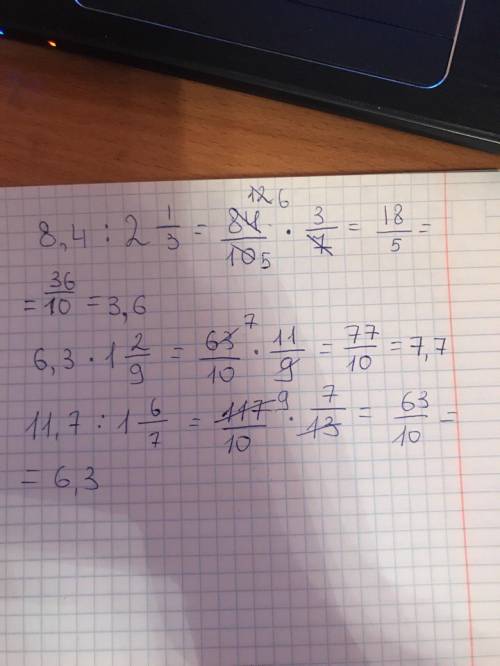 8,4 : 2 1/3 = 84/10 · 3/7 = 18/5 = 12 6 5
= 36/10 = 3,6
6,3 · 1 2/9 = 63/10 · 11/9 = 77/10 = 7,7 7
11,7 : 1 6/7 = 117/10 · 7/13 = 63/10 = 9
= 6,3